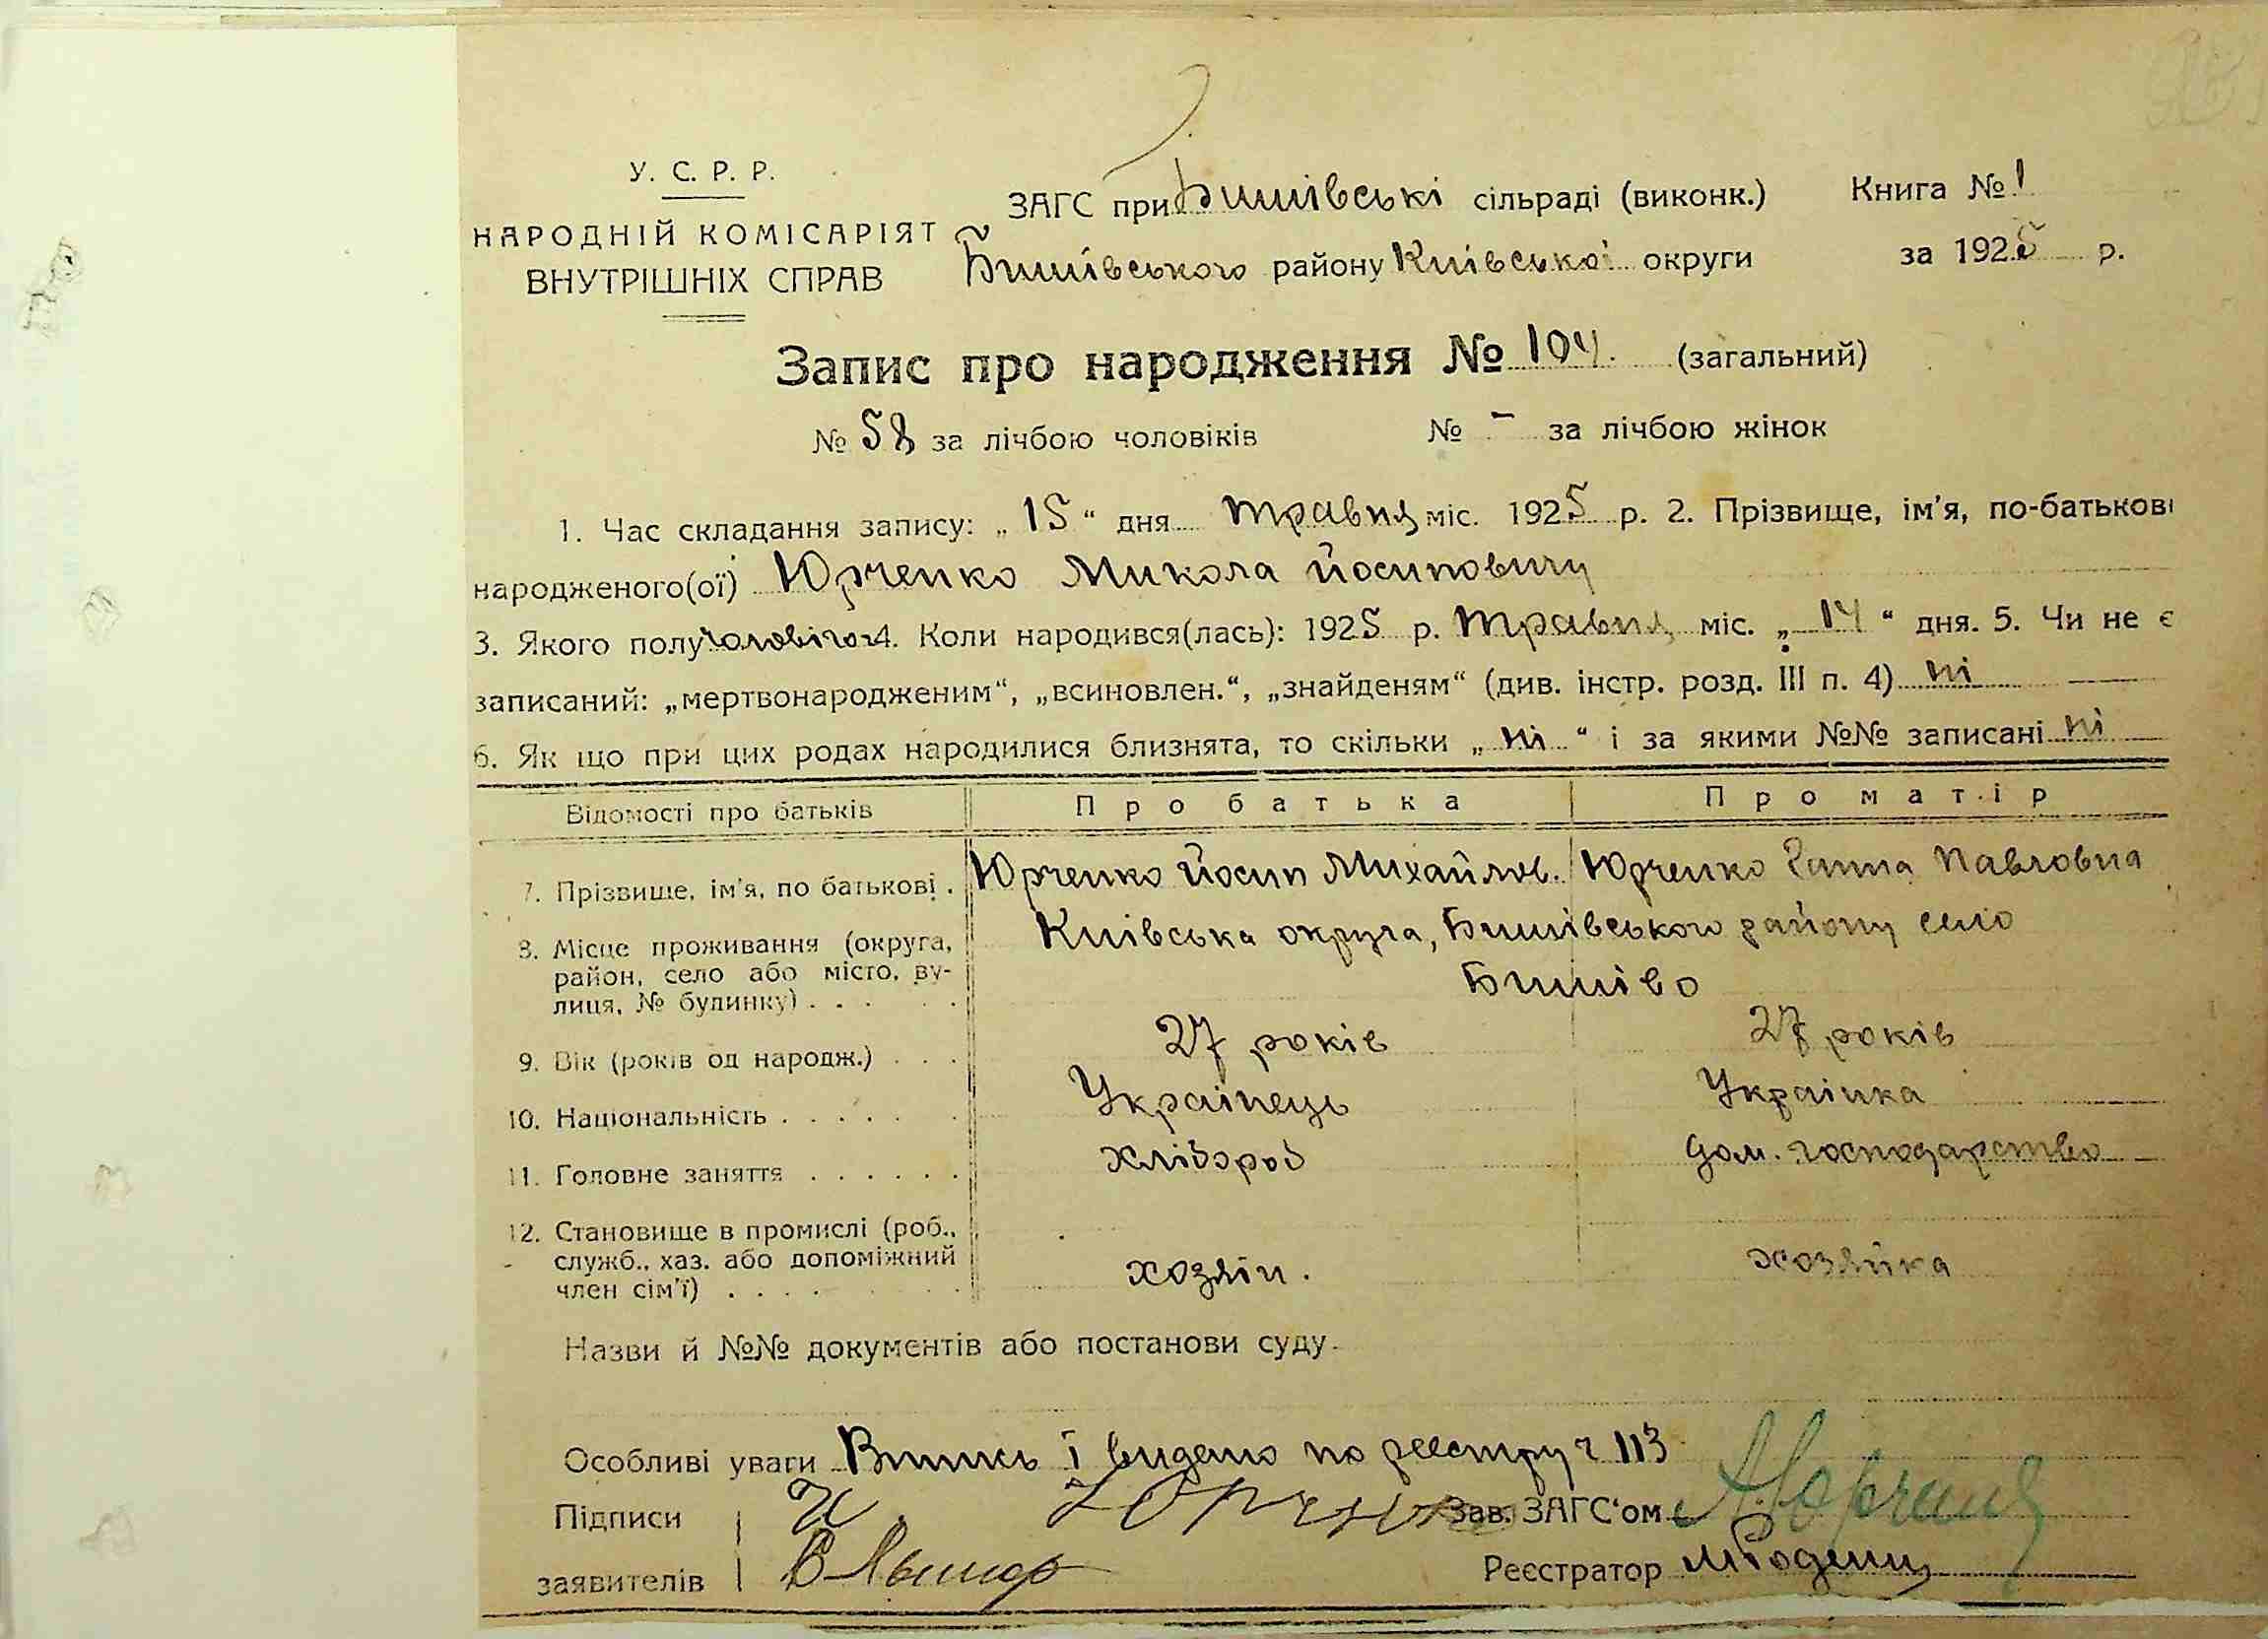 У. С. Р. Р.
НАРОДНІЙ КОМІСАРІЯТ
ВНУТРІШНІХ СПРАВ
ЗАГС при Бишівські сільраді (виконк.) Книга № 1
Бишівського району Київської округи за 1925 р.
Запис про народження № 104. (загальний)
№ 58 за лічбою чоловіків № - за лічбою жінок
1. Час складання запису: „ 15 “ дня травня міс. 1925 р. 2. Прізвище, ім'я, по-батькові
народженого(ої) Юрченко Микола Йосипович
3. Якого полу чоловічого 4. Коли народився(лась): 1925 р. травня міс. „ 14 “ дня. 5. Чи не є
записаний: „мертвонародженим“, „всиновлен.“, „знайденям“ (див. інстр. розд. III п. 4) ні
6. Як що при цих родах народилися близнята, то скільки „ ні “ і за якими №№ записані ні
Відомості про батьків Про батька Про матір
7. Прізвище, ім'я, по батькові . Юрченко Йосип Михайлов. Юрченко Ганна Павловна
8. Місце проживання (округа, Київська округа, Бишівського району село
район, село або місто, ву- Бишіво
лиця, № будинку) . . . .
9. Вік (років од народж.) . . . 27 років 27 років
10. Національність . . . . . . Українець Українка
11. Головне заняття . . . . . . хлібороб дом. господарство
12. Становище в промислі (роб.,
служб., хаз. або допоміжний хозяїн. хозяйка
член сім'ї) . . . .
Назви й №№ документів або постанови суду
Особливі уваги Випись і видано по реестру ч 113
Підписи Й. Юрченко Зав. ЗАГС'ом
заявителів В Реєстратор